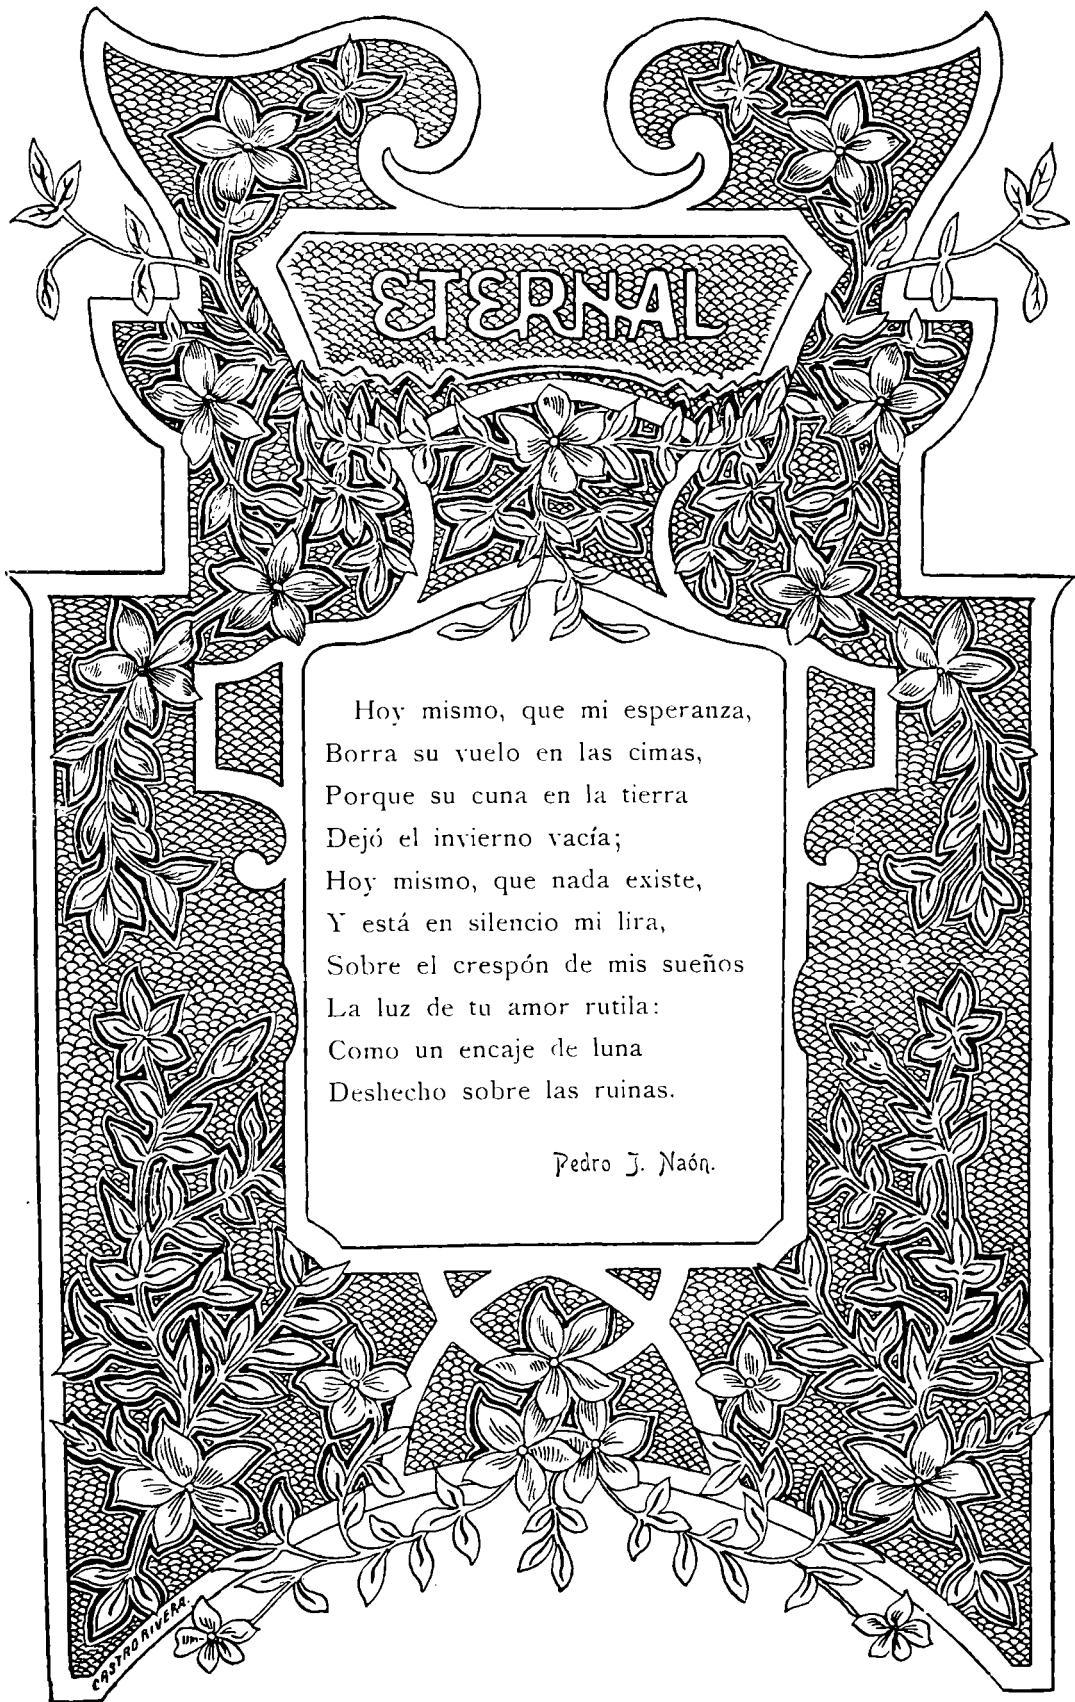 ETERNAL
Hoy mismo, que mi esperanza,
Borra su vuelo en las cimas,
Porque su cuna en la tierra
Dejó el invierno vacía;
Hoy mismo, que nada existe,
Y está en silencio mi lira,
Sobre el crespón de mis sueños
La luz de tu amor rutila:
Como un encaje de luna
Deshecho sobre las ruinas.
Pedro J. Naón.
CASTRO RIVERA.